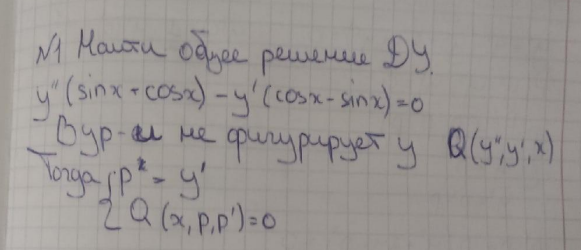 №1 Найти общее решение ДУ.
y''(sinx + cosx) - y'(cosx - sinx) = 0
В ур-и не фигурирует y Q(y'', y', x)
Тогда { p = y'
Q(x, p, p') = 0